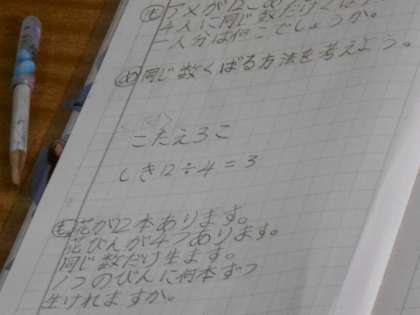 も アメが12こあ
4人に同じ数だけくば
一人分は何こでしょうか。
め 同じ数くばる方法を考えよう。
こたえ3こ
しき12÷4=3
も 花が12本あります。
花びんが4つあります。
同じ数だけ生ます。
1つのびんに何本ずつ
生けれますか。